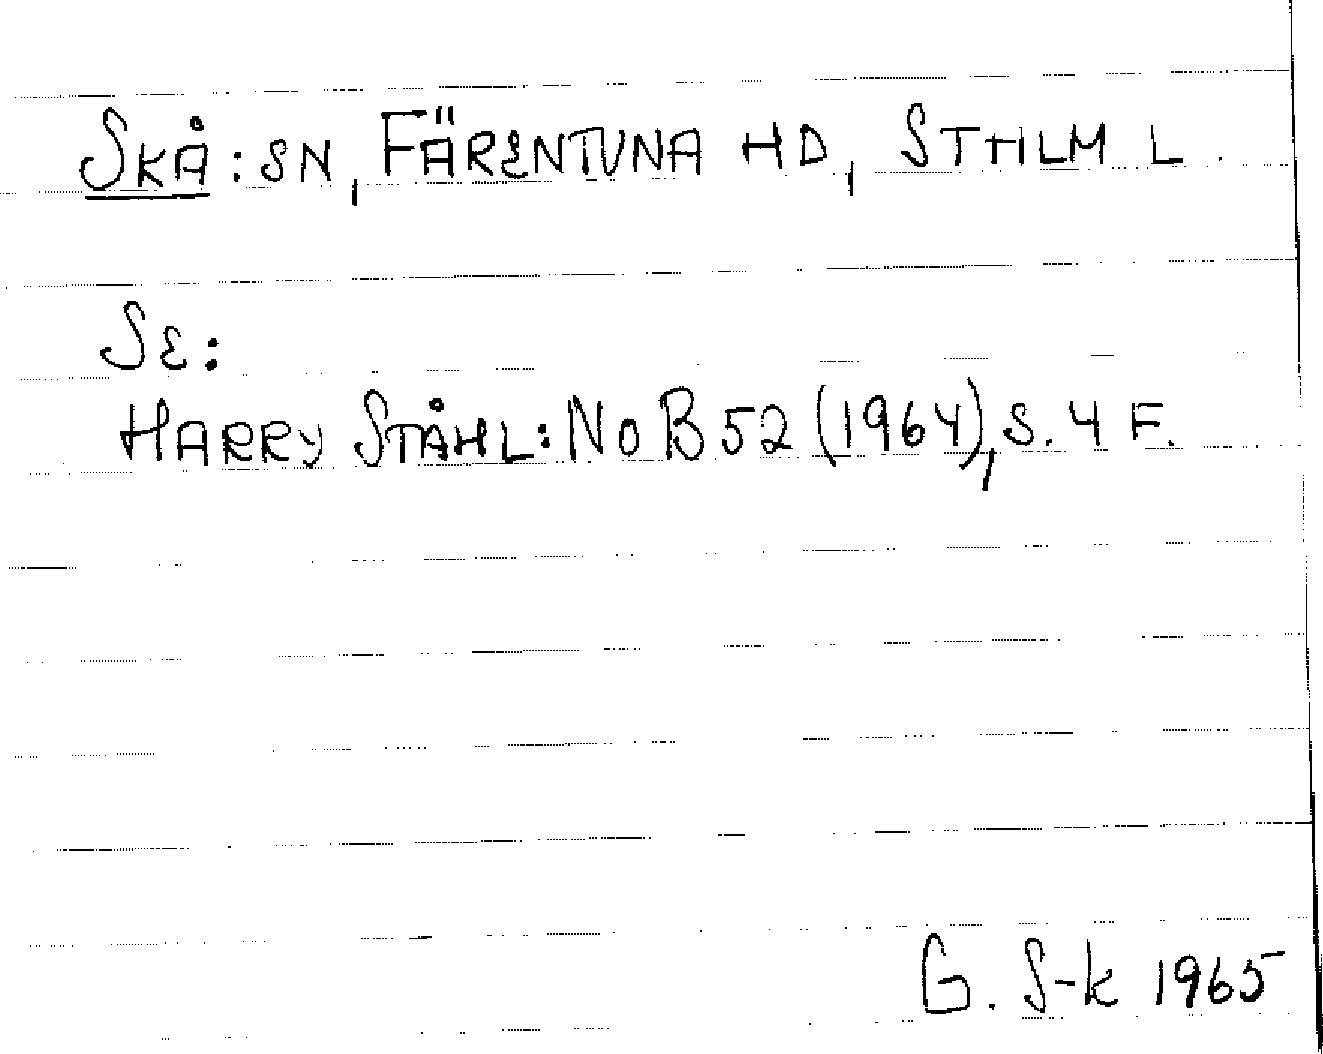 SKÅ: SN, FÄRENTUNA HD, STHLM L.
SE:
HARRY STÅHL: NOB 52 (1964), S. 4 F.
G. S-k 1965